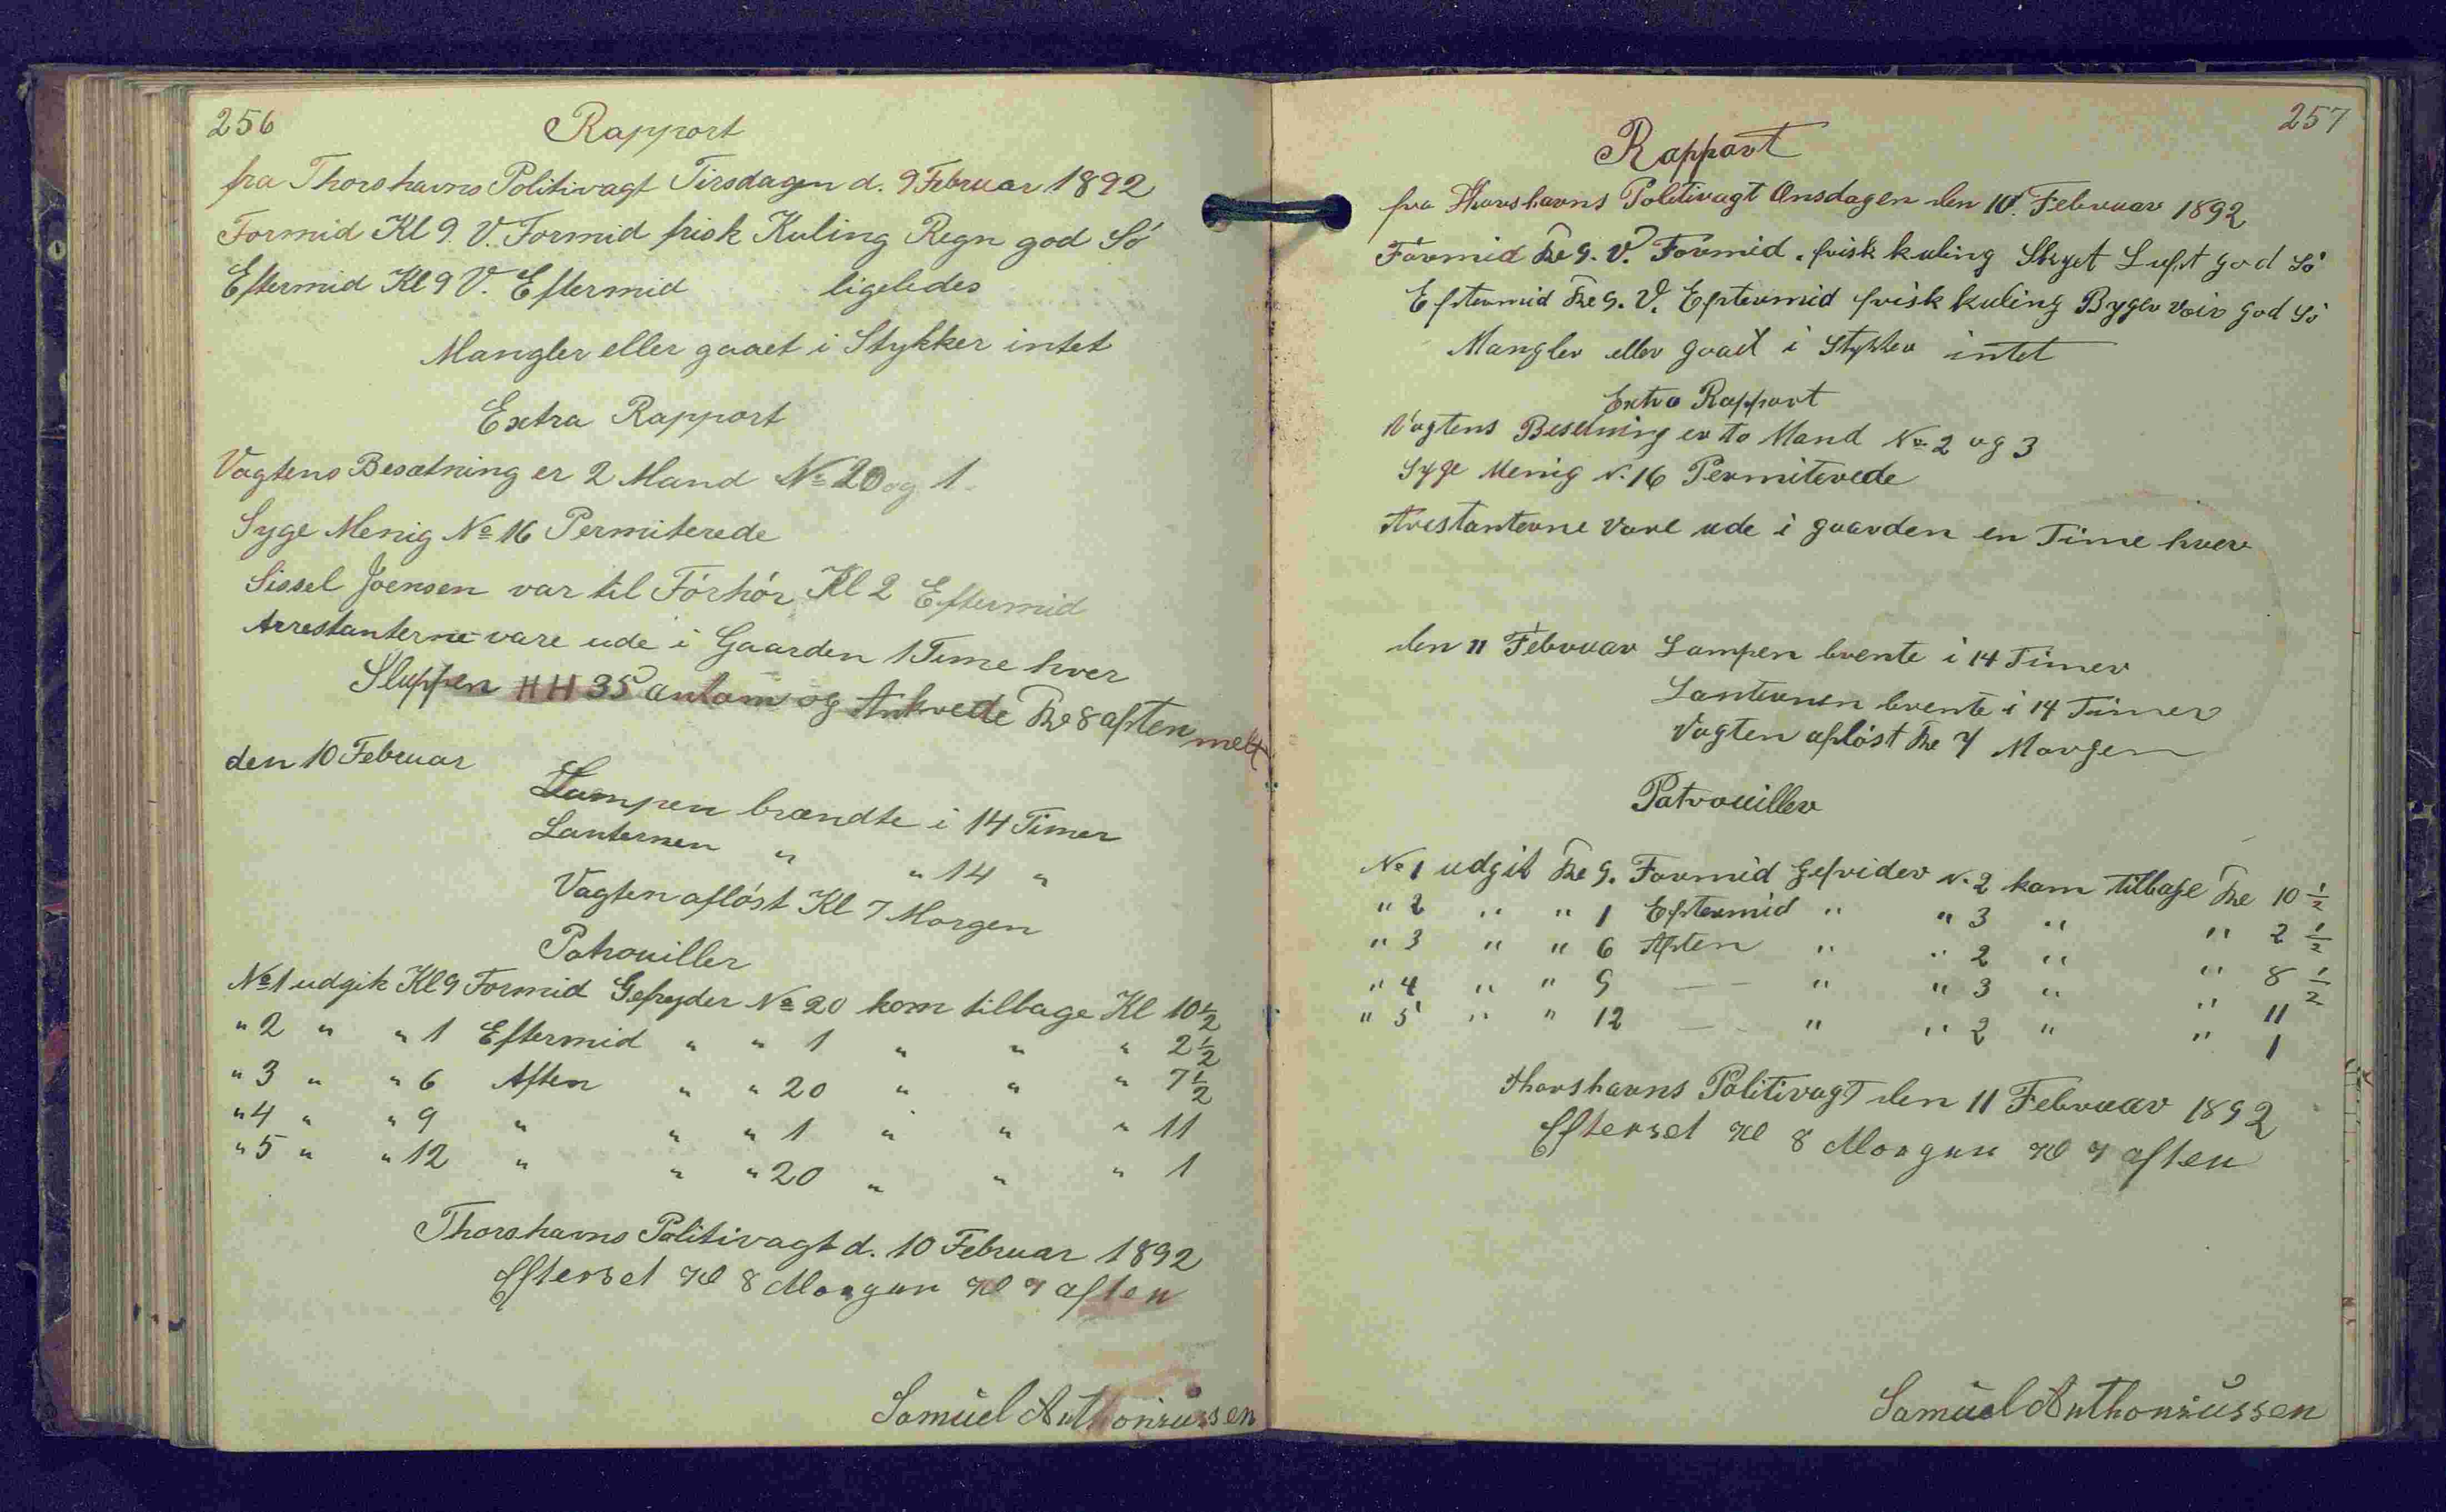 256
Rapport
fra Thorshavns Politivagt Tirsdagen d. 9 Februar 1892
Formid Kl 9. V. Formid frisk Kuling Regn god Sö
Eftermid Kl 9 V. Eftermid ligeledes
Mangler eller gaaet i Stykker intet
Extra Rapport
Vagtens Besætning er 2 Mand No 20 og 1
Syge Menig No 16 Permiterede
Sissel Joensen var til Förhör Kl 2 Eftermid
Arrestanterne vare ude i Gaarden 1 Time hver
Sluppen HH 35 ankom og Ankrede Kl 8 aften
den 10 Februar
Lampen brændte i 14 Timer
Lanternen " " 14 "
Vagten aflöst Kl 7 Morgen
Patrouiller
No 1 udgik Kl 9 Formid Gefryder No 20 kom tilbage Kl 10 1/2
" 2 " " 1 Eftermid " " 1 " " " 2 1/2
" 3 " " 6 Aften " " 20 " " " 7 1/2
" 4 " " 9 " " " 1 " " " 11
" 5 " " 12 " " " 20 " " " 1
Thorshavns Politivagt d. 10 Februar 1892
Efterset Kl 8 Morgun Kl 7 aften
Samuel Anthoniussen
257
Rapport
fra Thorshavns Politivagt Onsdagen den 10. Februar 1892
Formid Kl 9. V. Formid. frisk kuling Skyet Luft god Sö
Eftermid Kl 9. V. Eftermid frisk kuling Byger Veir god Sö
Mangler eller gaaet i Stykker intet
Extra Rapport
Vagtens Besetning er to Mand No 2 og 3
Syge Menig N. 16 Permiterede
Arestanterne vare ude i gaarden en Time hver
den 11 Februar Lampen brente i 14 Timer
Lanternen brente i 14 Timer
Vagten aflöst Kl 7 Morgen
Patrouiller
No 1 udgik Kl 9. Formid Gefrider N. 2 kom tilbage Kl 10 1/2
" 2 " " 1 Eftermid " " 3 " " 2 1/2
" 3 " " 6 Aften " " 2 " " 8 1/2
" 4 " " 9 — — " " 3 " " 11
" 5 " " 12 — — " " 2 " " 1
Thorshavns Politivagt den 11 Februar 1892
Efterset Kl 8 Morgun Kl 7 aften
Samuel Anthoniussen